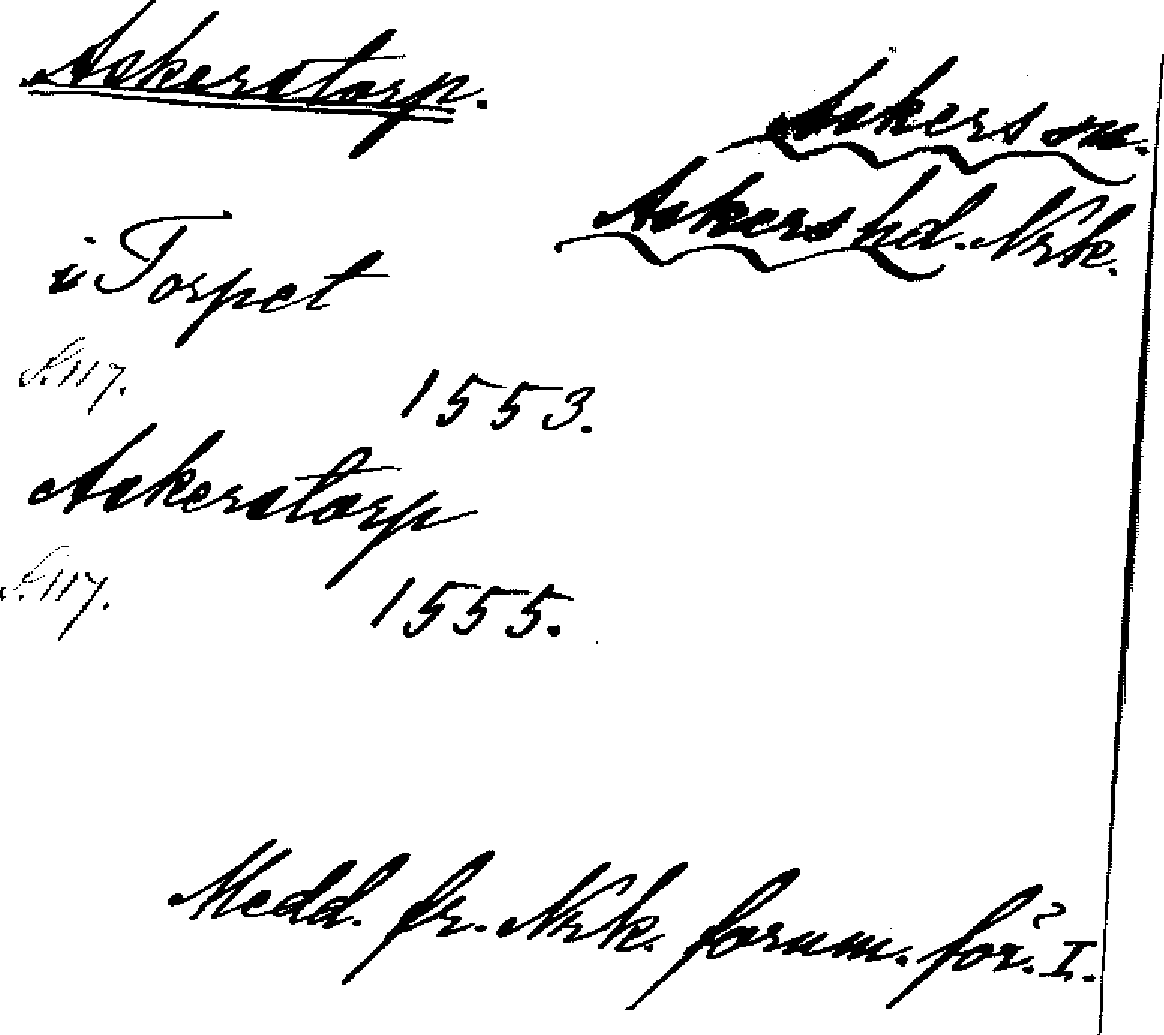 Askerstorp.
Askers sn.
Askers hd. Nrk.
i Torpet
S. 117.
1553.
Askerstorp
S. 117.
1555.
Medd. fr. Nrk. fornm. för. I.